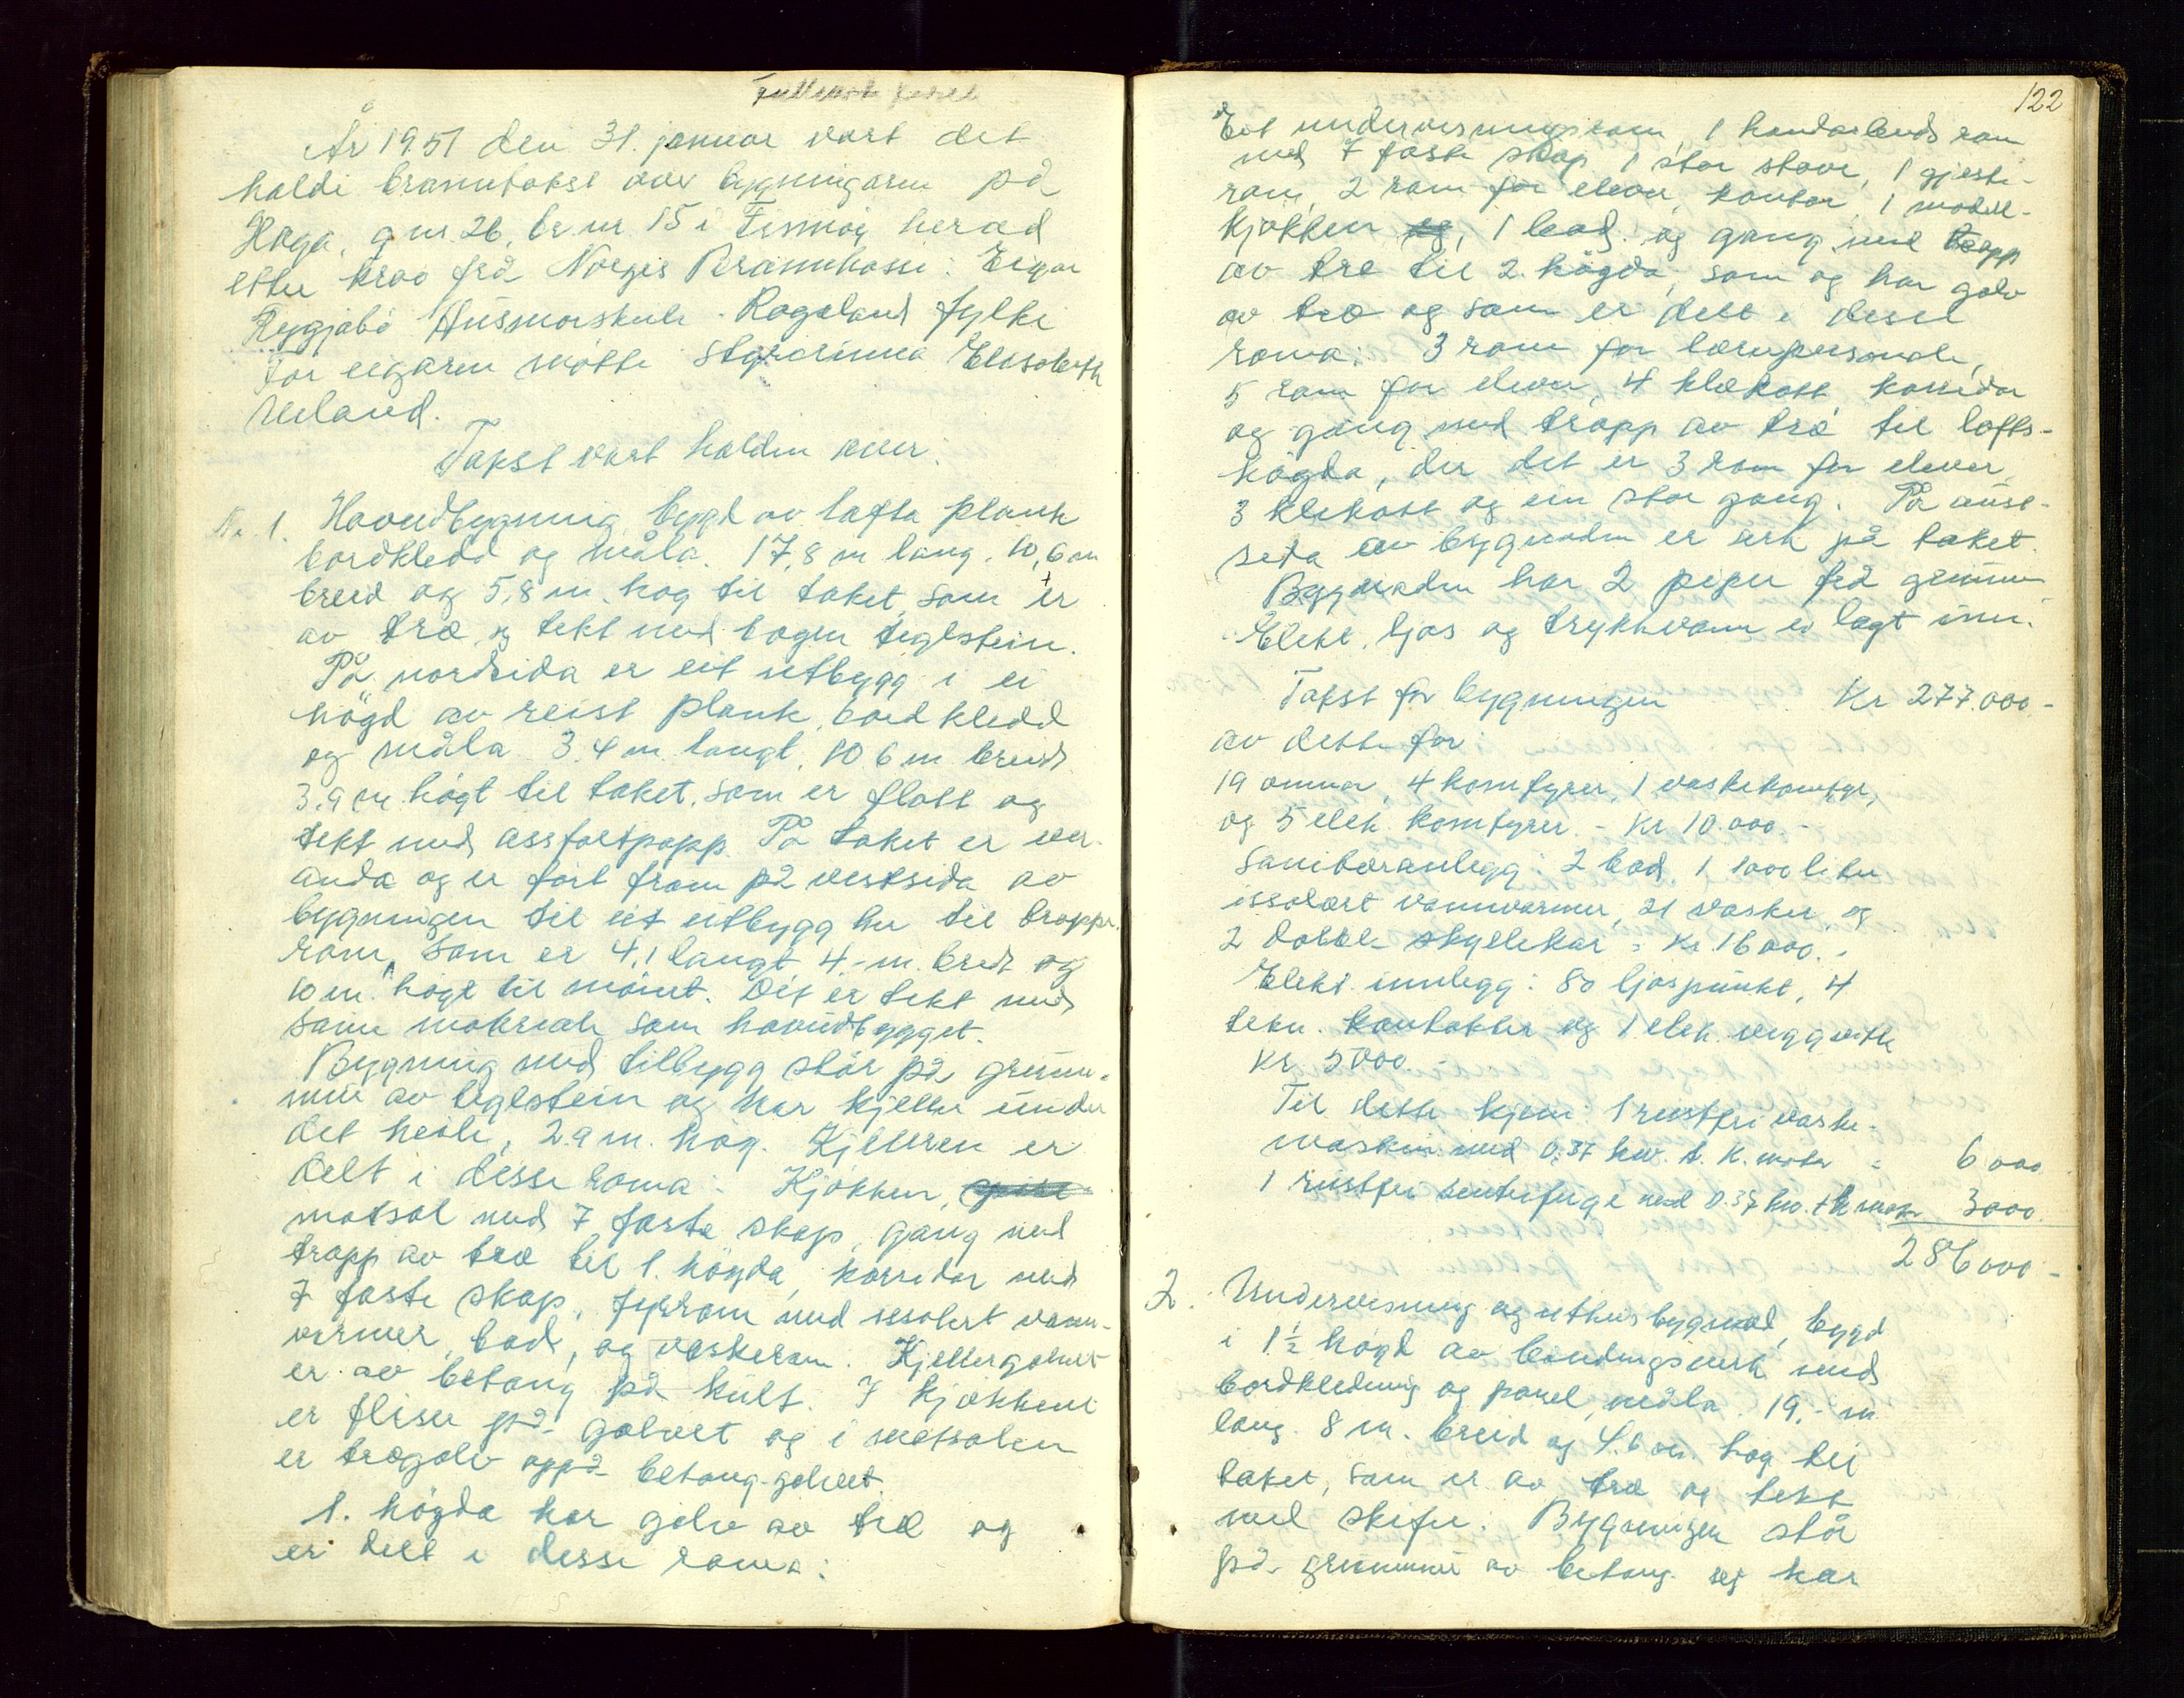 År 1951 den 31. januar vart det
haldi branntakst over bygningarne på
Haga, g nr. 26, br. nr. 15 i Fismøy herad
etter krav frå Norges Brannkasse. Eigar
Rygjabø Husmorskule - Rogaland fylke
For eigaren møtte Styrarinna Elisabeth
Ueland.
Takst vart halden over:
Nr. 1. Hovudbygning bygd av lafta plank
bordkledd og måla. 17,8 m lang. 10,6 m
breid og 5,8 m. høg til taket, som er
av tre og tekt med bogen teglstein.
På nordsida er eit utbygg i ei
høgd av reist plank, bordkledd
og måla 3.4 m langt, 10 6 m. breid
3.9 m. høgt til taket, som er flatt og
tekt med assfaltpapp. På taket er ver-
anda og er ført fram på vestsida av
bygningen til eit utbygg her til trappe-
rom, som er 4,1 langt 4,- m. breit og
10 m. høgt til mønet. Det er tekt med
same materiale som hovudbygget.
Bygning med tilbygg står på grunn-
mur av teglstein og har kjellar under
det heile, 2.9 m. høg. Kjelleren er
delt i disse roma: Kjøkken,
matsal med 7 faste skap, gang med
trapp av tre til 1. høgda, korridor med
7 faste skap, fyrrom med issolert vann-
varmer, bad, og vaskerom. Kjellergolvet
er av betong på kult. I kjøkkenet
er fliser på golvet og i matsalen
er tregolv oppå betong-golvet.
1. høgda har golv av tre og
er delt i desse roma:
122
Eit undervisningsrom, 1 handarbeids rom
med 7 faste skap, 1 stor stove, 1 gjeste-
rom, 2 rom for elever, kontor, 1 modell-
kjøkken og, 1 bad. og gang med trapp
av tre til 2. høgda, som og har golv
av tre og som er delt i desse
roma: 3 rom for lærepersonale,
5 rom for elever, 4 klekott korridor
og gang med trapp av tre til lofts-
høgda, der det er 3 rom for elever
3 klekott og ein stor gang. På aust-
sida av bygnaden er ark på taket.
Bygnaden har 2 piper frå grunnen
Elekt. ljos og trykkvann er lagt inn.
Takst for bygningen Kr 277.000 -
av dette for:
19 omnar, 4 komfyrer, 1 vaskekomfyr,
og 5 elek. komfyrer. - Kr 10.000. -
Saniteranlegg: 2 bad. 1 1000 liter
issolert vannvarmer, 21 vasker og
2 doble skyllekar = Kr. 16000. -
Elekt. innlegg: 80 ljospunkt, 4
tekn. kontakter og 1 elek. veggvifte
Kr 5000. -
Til dette kjem: 1 rustfri vaske-
maskin med 0,37 kw. t. k. motor = 6000
1 rustfri sentrifuge med 0.37 kw. t k motor 3000.
286000 -
2. Undervisning og uthus bygnad, bygd
i 1½ høgd av bindingsverk med
bordkledning og panel, måla. 19,- m
lang. 8 m. breid og 4.6 m. høg til
taket, som er av tre og tekt
med skifer. Bygningen står
på grunnmur av betong og har